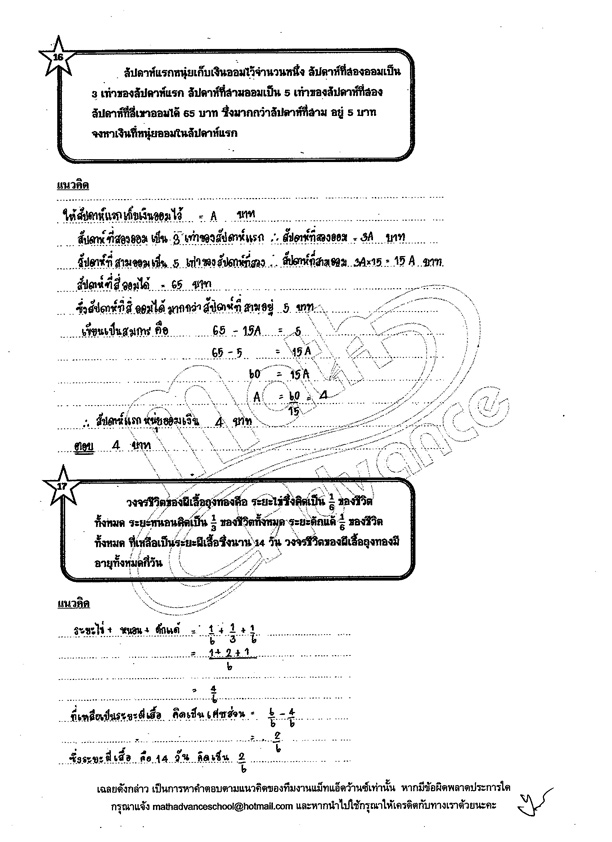 16
สัปดาห์แรกหนุ่ยเก็บเงินออมไว้จำนวนหนึ่ง สัปดาห์ที่สองออมเป็น
3 เท่าของสัปดาห์แรก สัปดาห์ที่สามออมเป็น 5 เท่าของสัปดาห์ที่สอง
สัปดาห์ที่สี่เขาออมได้ 65 บาท ซึ่งมากกว่าสัปดาห์ที่สาม อยู่ 5 บาท
จงหาเงินที่หนุ่ยออมในสัปดาห์แรก
แนวคิด
ให้สัปดาห์แรกเก็บเงินออมไว้ = A บาท
สัปดาห์ที่สองออมเป็น 3 เท่าของสัปดาห์แรก ∴ สัปดาห์ที่สองออม = 3A บาท
สัปดาห์ที่สามออมเป็น 5 เท่าของสัปดาห์ที่สอง ∴ สัปดาห์ที่สามออม 3A×5 = 15A บาท
สัปดาห์ที่สี่ออมได้ = 65 บาท
ซึ่งสัปดาห์ที่สี่ออมได้มากกว่าสัปดาห์ที่สามอยู่ 5 บาท
เขียนเป็นสมการ คือ 65 - 15A = 5
65 - 5 = 15A
60 = 15A
A = 60/15 = 4
∴ สัปดาห์แรกหนุ่ยออมเงิน 4 บาท
ตอบ 4 บาท
Math Advance
17
วงจรชีวิตของผีเสื้อถุงทองคือ ระยะไข่ซึ่งคิดเป็น 1/6 ของชีวิต
ทั้งหมด ระยะหนอนคิดเป็น 1/3 ของชีวิตทั้งหมด ระยะดักแด้ 1/6 ของชีวิต
ทั้งหมด ที่เหลือเป็นระยะผีเสื้อซึ่งนาน 14 วัน วงจรชีวิตของผีเสื้อถุงทองมี
อายุทั้งหมดกี่วัน
แนวคิด
ระยะไข่ + หนอน + ดักแด้ = 1/6 + 1/3 + 1/6
= 1+2+1/6
= 4/6
ที่เหลือเป็นระยะผีเสื้อ คิดเป็นเศษส่วน = 6/6 - 4/6
= 2/6
ซึ่งระยะผีเสื้อ คือ 14 วัน คิดเป็น 2/6
เฉลยดังกล่าว เป็นการหาคำตอบตามแนวคิดของทีมงานแม็ทแอ็ดว้านซ์เท่านั้น หากมีข้อผิดพลาดประการใด
กรุณาแจ้ง mathadvanceschool@hotmail.com และหากนำไปใช้กรุณาให้เครดิตกับทางเราด้วยนะคะ